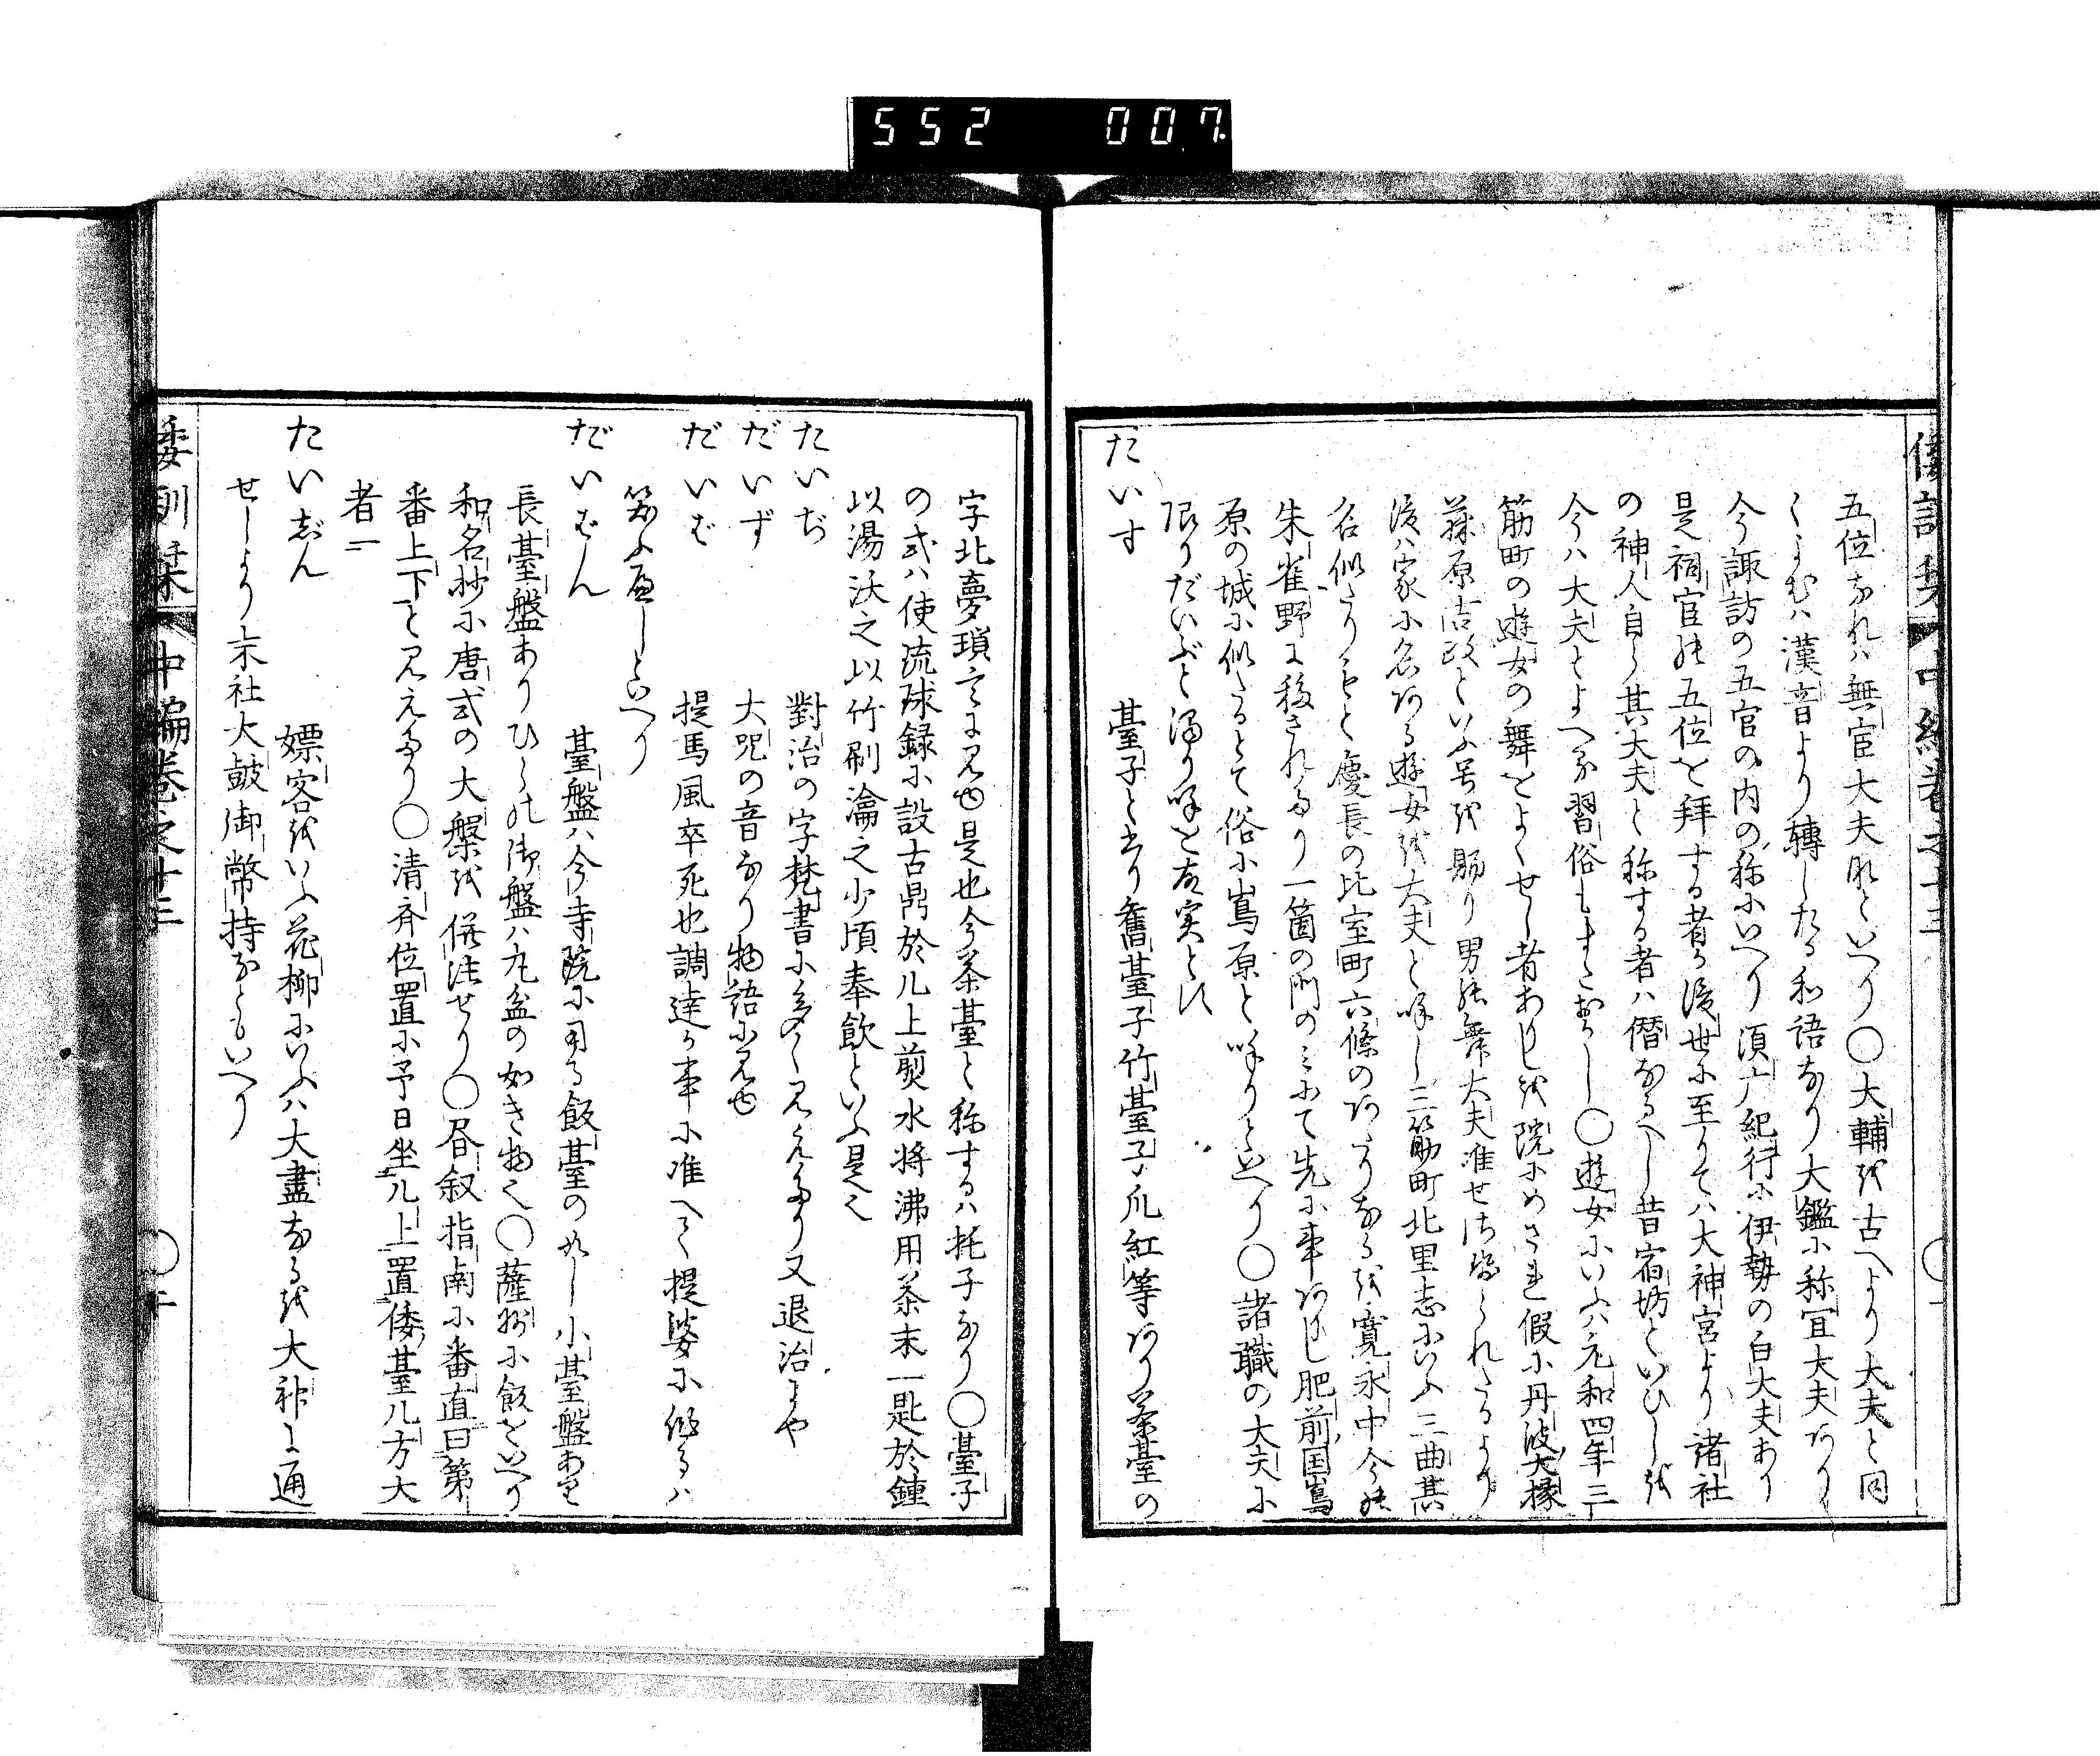 552 007
五位なれハ無官大夫なといへり〇大輔を古へより大夫と同
くよむハ漢音より轉したる和語なり大鑑に称宜大夫あり
今諏訪の五官の内の称にいへり須广紀行に伊勢の白大夫あり
是祠官の五位を拜する者か後世に至りてハ大神宮より諸社
の神人自ら其大夫と称する者ハ僭なるへし昔宿坊といひしを
今ハ大夫とよへる習俗もまたおかし〇遊女にいふハ元和四年三
筋町の遊女の舞をよくせし者ありしを院にめされ假に丹波大掾
藤原吉政といふ号を賜り男の舞大夫准せられたるより
後ハ家に名ある遊女を大夫と呼し三筋町北里志にいふ三曲其
名似たりもと慶長の比室町六條のあたりなるを寛永中今の
朱雀野に移されたり一箇の門のミにて先に事ありし肥前国嶌
原の城に似たるとて俗に嶌原と呼りといへり〇諸職の大夫に
限りだいぶと濁り呼を故実とす
たいす 臺子と書り舊臺子竹臺子爪紅等あり茶臺の
字北夢瑣言に見ゆ是也今茶臺と称するハ托子なり〇臺子
の式ハ使流球録に設古鼎於几上煎水将沸用茶末一匙於鍾
以湯沃之以竹刷瀹之少頃奉飲といふ是也
たいぢ 對治の字梵書に多く見えたり又退治にや
だいず 大呪の音なり物語に見ゆ
だいば 提馬風卒死也調達か事に准へて提婆に作るハ
笑ふ可しといへり
だいばん 臺盤ハ今寺院に用る飯臺の如し小臺盤あり
長臺盤ありひらの御盤ハ丸盆の如き物也〇薩州に飯をいへり
和名抄に唐式の大槃を併注せり〇昏叙指南に番直曰第
番上下と見えたり〇清斉位置に予日坐几上置倭臺几方大
者一
たいじん 嫖客をいふ花柳にいふハ大盡なるを大神に通
せしより末社大鼓御幣持なともいへり
倭訓栞 中編巻之十三 〇二